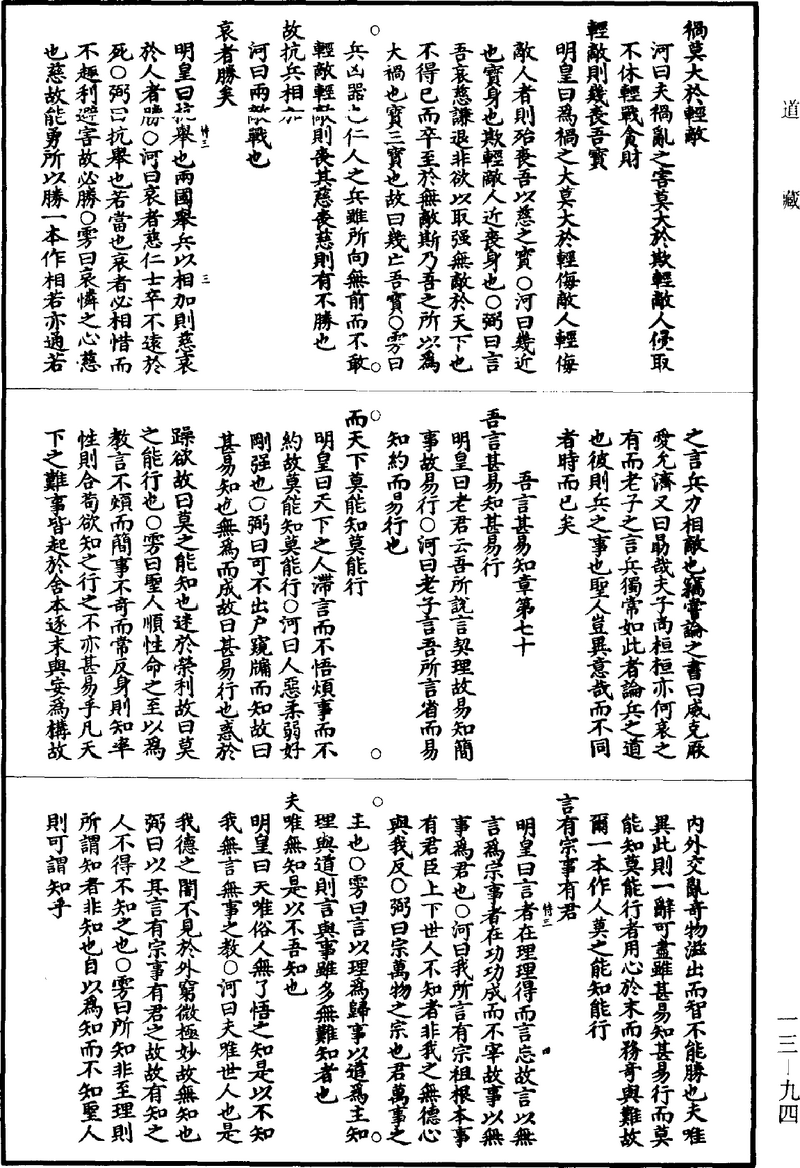 道藏
禍莫大於輕敵
河曰夫禍亂之害莫大於欺輕敵人侵取
不休輕戰貪財
輕敵則幾喪吾寶
明皇曰爲禍之大莫大於輕侮敵人輕侮
敵人者則殆喪吾以慈之寶○河曰幾近
也寶身也欺輕敵人近喪身也○弼曰言
吾哀慈謙退非欲以取强無敵於天下也
不得已而卒至於無敵斯乃吾之所以爲
大禍也寶三寶也故曰幾亡吾寶○雱曰
兵凶器也仁人之兵雖所向無前而不敢
輕敵輕敵則喪其慈喪慈則有不勝也
故抗兵相加
河曰兩敵戰也
哀者勝矣
明皇曰抗舉也兩國舉兵以相加則慈哀
於人者勝○河曰哀者慈仁士卒不遠於
死○弼曰抗舉也若當也哀者必相惜而
不趣利避害故必勝○雱曰哀憐之心慈
也慈故能勇所以勝一本作相若亦通若
之言兵力相敵也竊嘗論之書曰威克厥
愛允濟又曰勗哉夫子尚桓桓亦何哀之
有而老子之言兵獨常如此者論兵之道
也彼則兵之事也聖人豈異意哉而不同
者時而已矣
吾言甚易知章第七十
吾言甚易知甚易行
明皇曰老君云吾所說言契理故易知簡
事故易行○河曰老子言吾所言省而易
知約而易行也
而天下莫能知莫能行
明皇曰天下之人滯言而不悟煩事而不
約故莫能知莫能行○河曰人惡柔弱好
剛强也○弼曰可不出户窺牖而知故曰
甚易知也無爲而成故曰甚易行也惑於
躁欲故曰莫之能知也迷於榮利故曰莫
之能行也○雱曰聖人順性命之至以爲
教言不煩而簡事不奇而常反身則知率
性則合苟欲知之行之不亦甚易乎凡天
下之難事皆起於舍本逐末與妄爲構故
內外交亂奇物滋出而智不能勝也夫唯
異此則一辭可盡雖甚易知甚易行而莫
能知莫能行者用心於末而務奇與難故
爾一本作人莫之能知能行
言有宗事有君
明皇曰言者在理理得而言忘故言以無
言爲宗事者在功功成而不宰故事以無
事爲君也○河曰我所言有宗祖根本事
有君臣上下世人不知者非我之無德心
與我反○弼曰宗萬物之宗也君萬事之
主也○雱曰言以理爲歸事以道爲主知
理與道則言與事雖多無難知者也
夫唯無知是以不吾知也
明皇曰夫唯俗人無了悟之知是以不知
我無言無事之教○河曰夫唯世人也是
我德之闇不見於外窮微極妙故無知也
弼曰以其言有宗事有君之故故有知之
人不得不知之也○雱曰所知非至理則
所謂知者非知也自以爲知而不知聖人
則可謂知乎
一三—九四